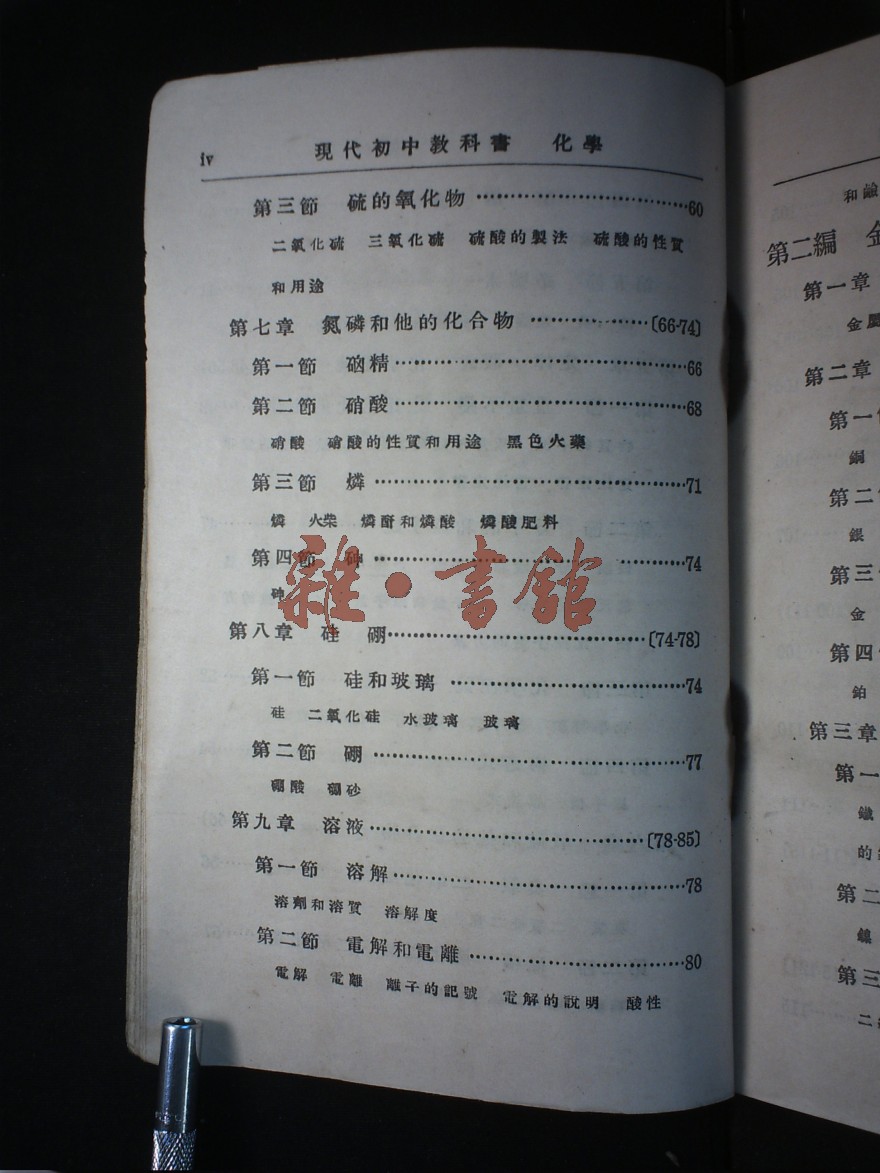 iv 現代初中教科書 化學
第三節 硫的氧化物 ……………………………60
二氧化硫 三氧化硫 硫酸的製法 硫酸的性質
和用途
第七章 氮磷和他的化合物 ………………〔66-74〕
第一節 硇精 ……………………………………66
第二節 硝酸 ……………………………………68
硝酸 硝酸的性質和用途 黑色火藥
第三節 燐 ………………………………………71
燐 火柴 燐酐和燐酸 燐酸肥料
第四節 砷 ………………………………………74
砷
第八章 硅 硼 ……………………………〔74-78〕
第一節 硅和玻璃 ………………………………74
硅 二氧化硅 水玻璃 玻璃
第二節 硼 ………………………………………77
硼酸 硼砂
第九章 溶液 ………………………………〔78-85〕
第一節 溶解 ……………………………………78
溶劑和溶質 溶解度
第二節 電解和電離 ……………………………80
電解 電離 離子的記號 電解的說明 酸性
雜·書館
和鹼
第二編 金
第一章
金屬
第二章
第一
銅
第二
銀
第三
金
第四
鉑
第三章
第一
鐵
的
第二
鎳
第三
二